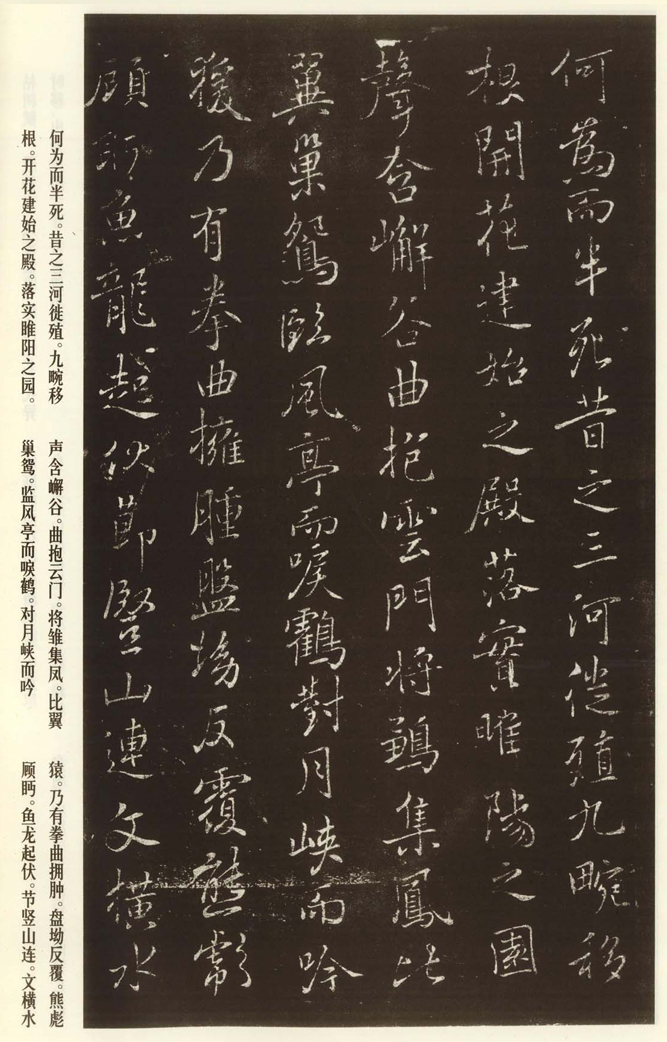 何為而半死昔之三河徙殖九畹移
根開花建始之殿落實睢陽之園
聲含嶰谷曲抱雲門將鶵集鳳比
翼巢鴛臨風亭而唳鶴對月峽而吟
猨乃有拳曲擁腫盤坳反覆熊彪
顧盼魚龍起伏節豎山連文橫水
何为而半死。昔之三河徙殖。九畹移
根。开花建始之殿。落实睢阳之园。
声含嶰谷。曲抱云门。将雏集凤。比翼
巢鸳。监风亭而唳鹤。对月峡而吟
猿。乃有拳曲拥肿。盘坳反覆。熊彪
顾眄。鱼龙起伏。节竖山连。文横水